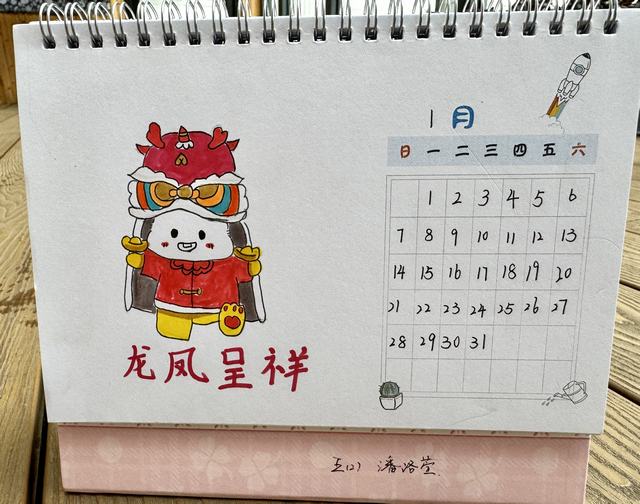 1月
日 一 二 三 四 五 六
1 2 3 4 5 6
7 8 9 10 11 12 13
14 15 16 17 18 19 20
21 22 23 24 25 26 27
28 29 30 31
龙凤呈祥
五(2) 潘路萱